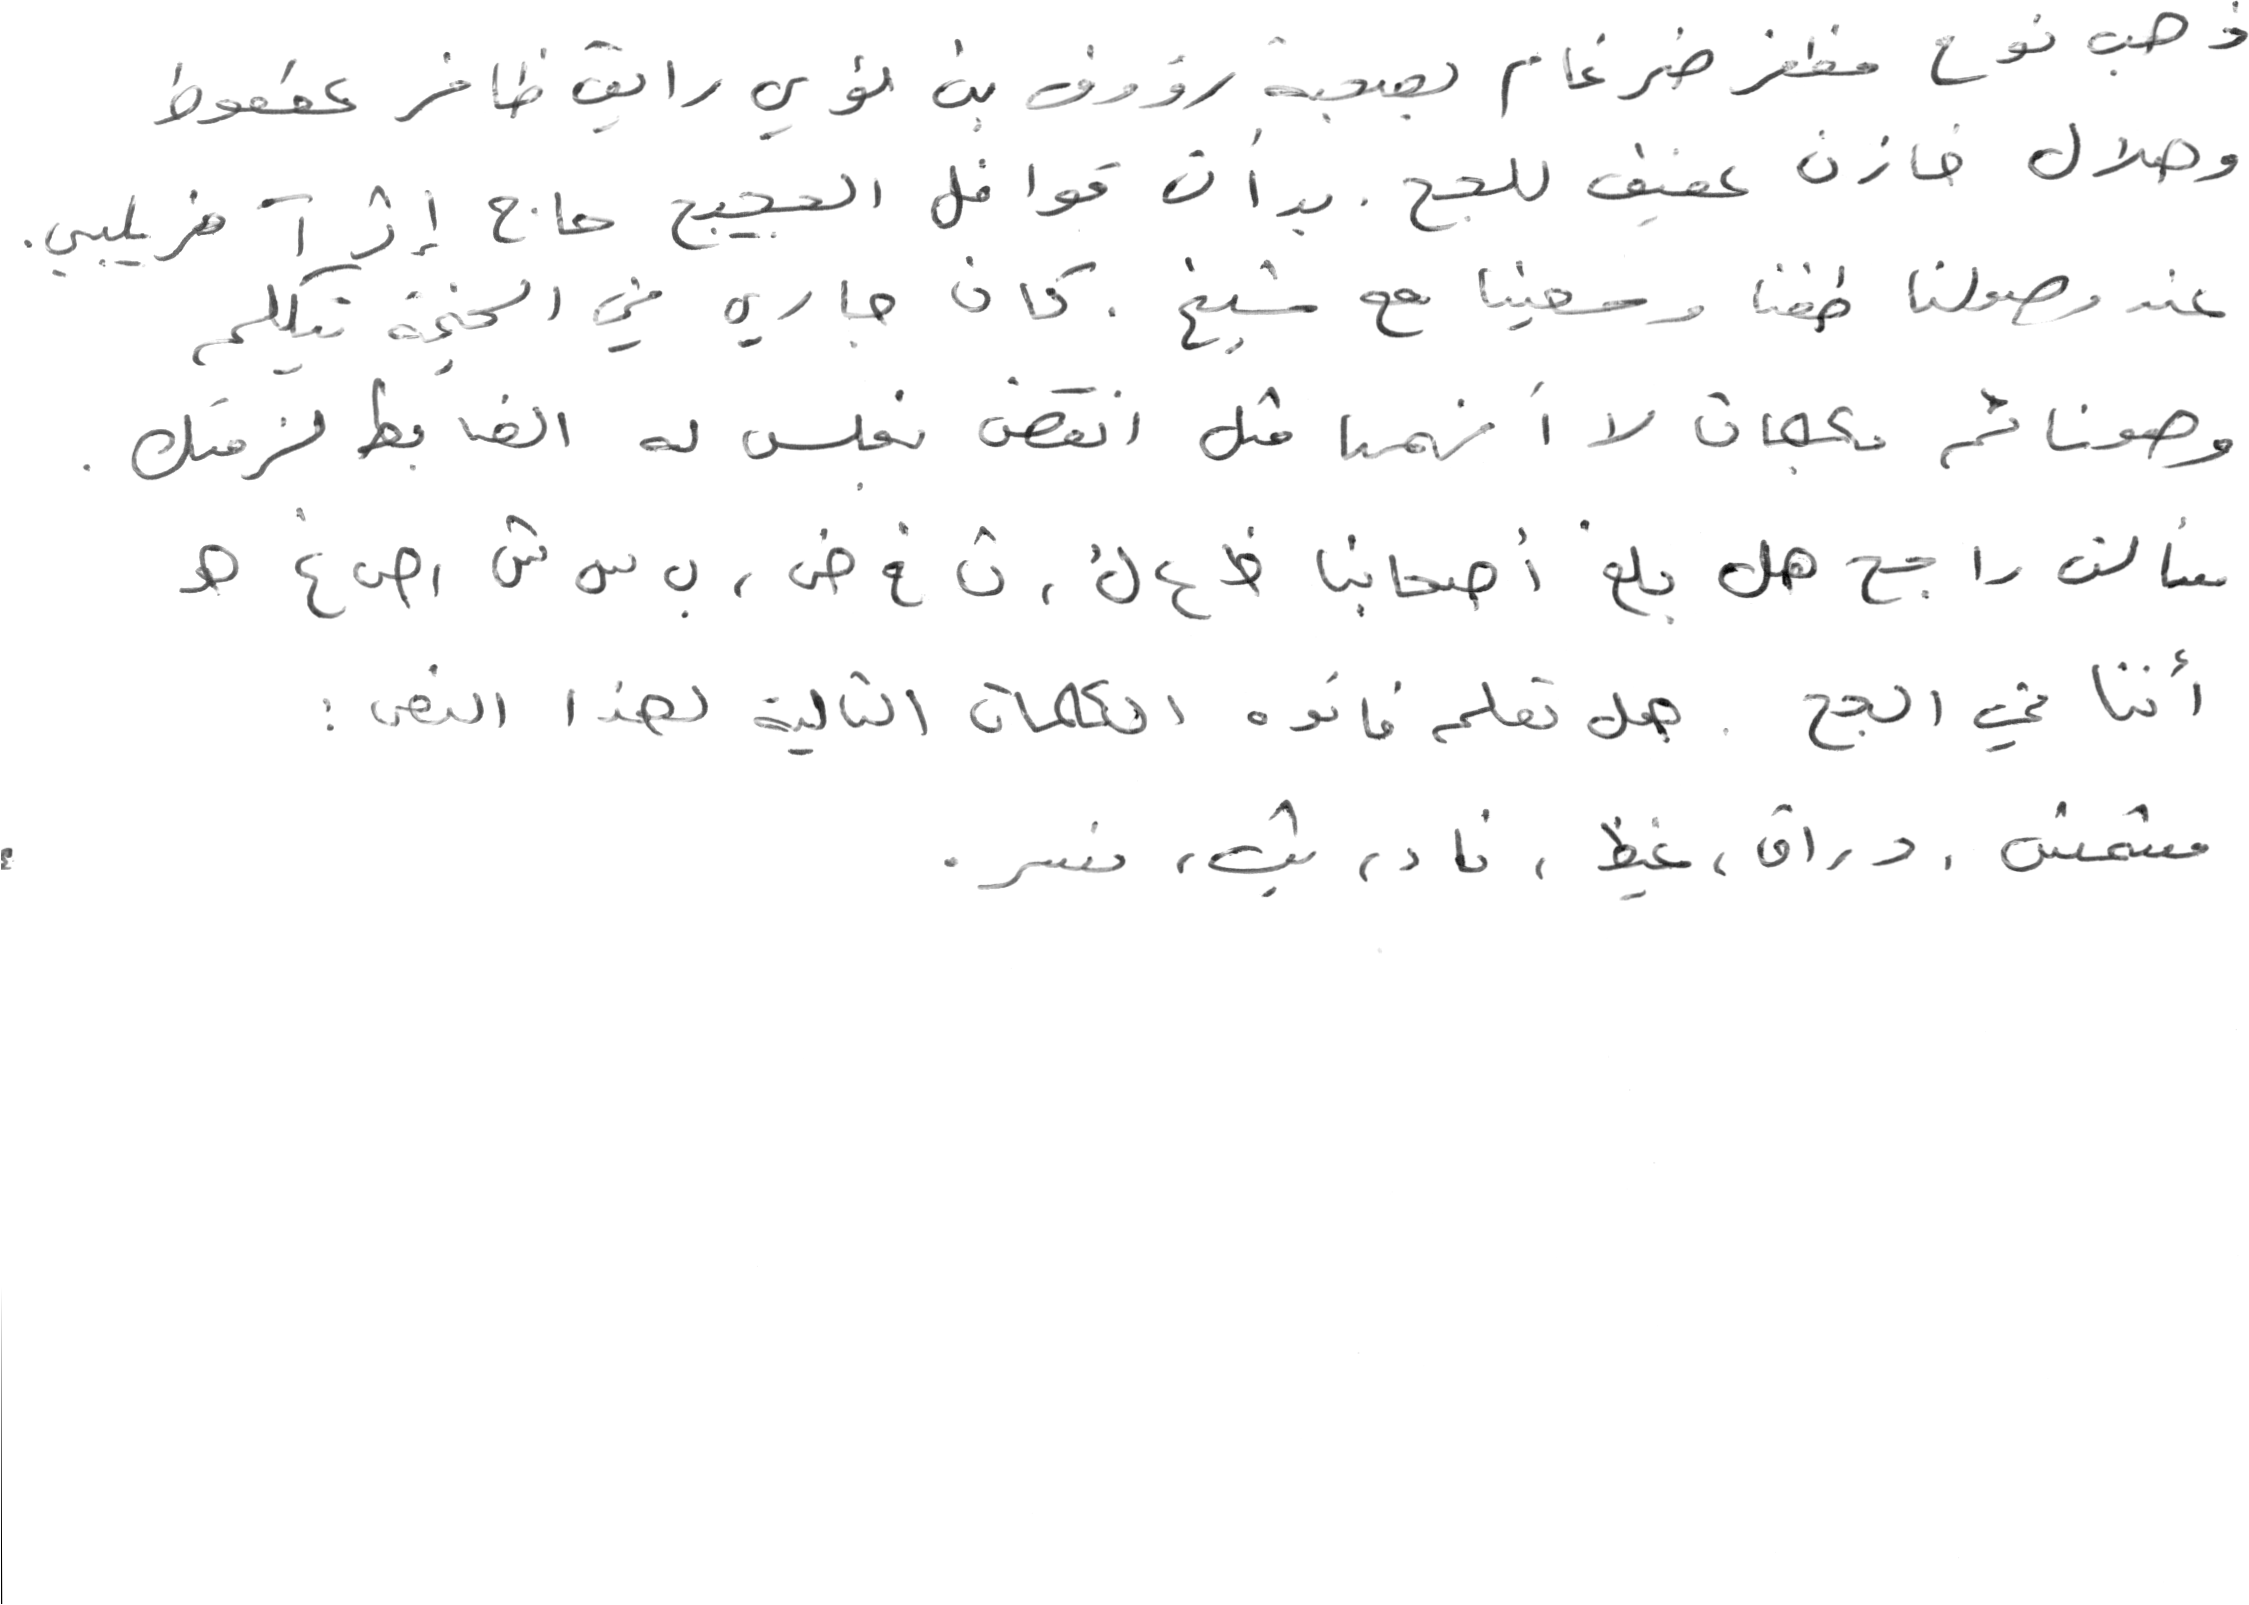 ذهب نوح مظفر ضرغام بصحبة رؤوف بن لؤي رايق ظافر محفوظ
وهلال خازن عفيف للحج. بدأت قوافل الحجيج حاج إثر آخر يلبي.
عند وصولنا طفنا وسعينا مع شيخ. كان جاري في الخيمة يتكلم
بكلمات لا أفهمها مثل انقض نفلس له الضابط لزمتك.
سألت راجح هل بلغ أصحابنا ظ ع ك، ث غ ض، ب س ش، ص غ ه
أننا في الحج. هل تعلم فائدة الكلمات التالية لهذا النص:
مشمش، دراق، غيظ، ثاد، يثب، نسر.